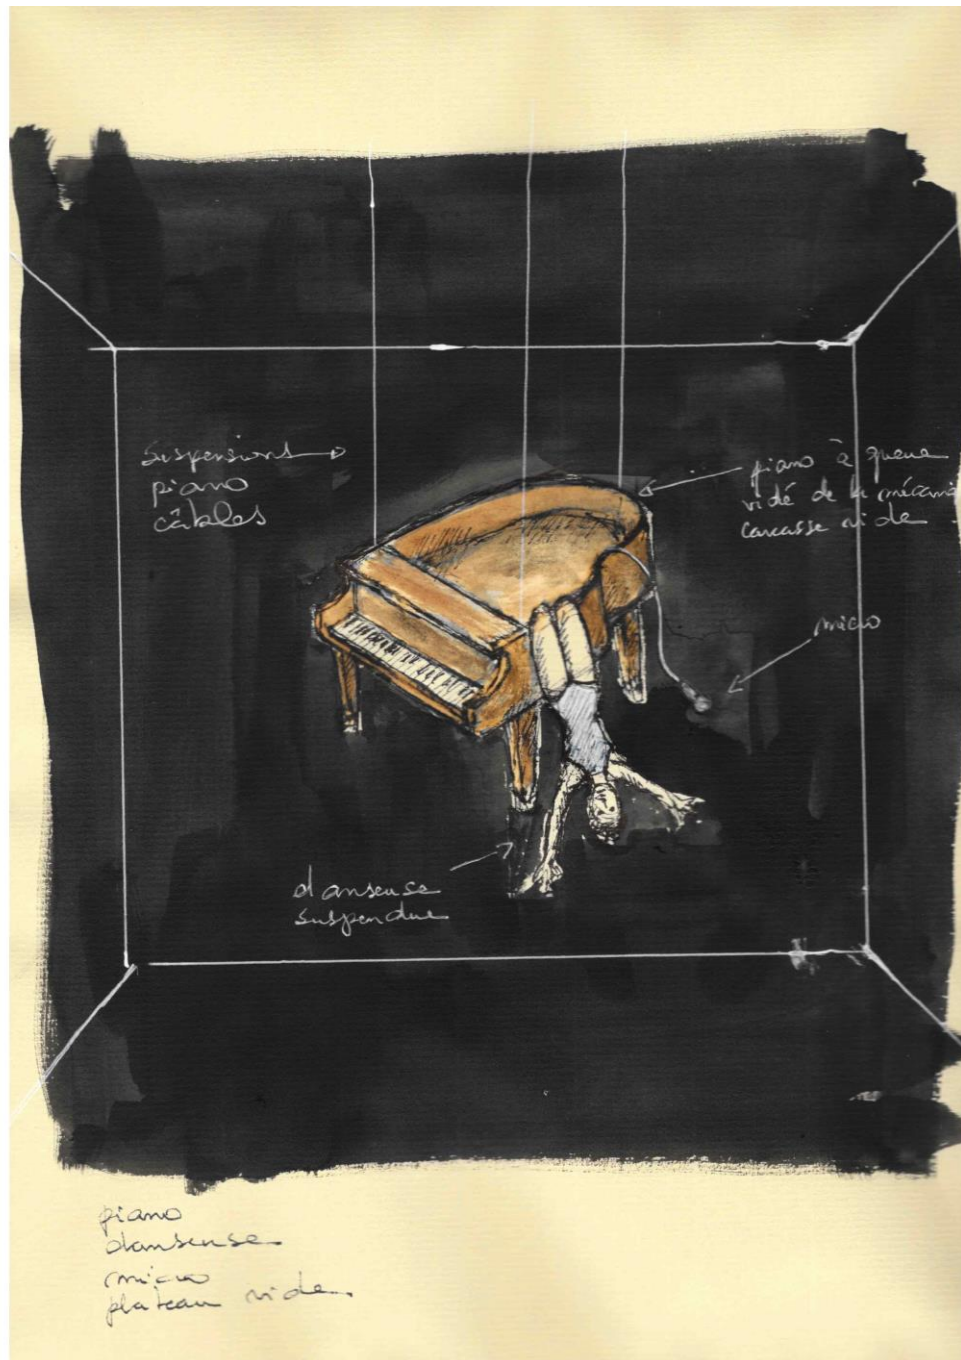 suspensions
piano
câbles
piano à queue
vidé de la mécanique
carcasse vide
micro
danseuse
suspendue
piano
danseuse
micro
plateau vide